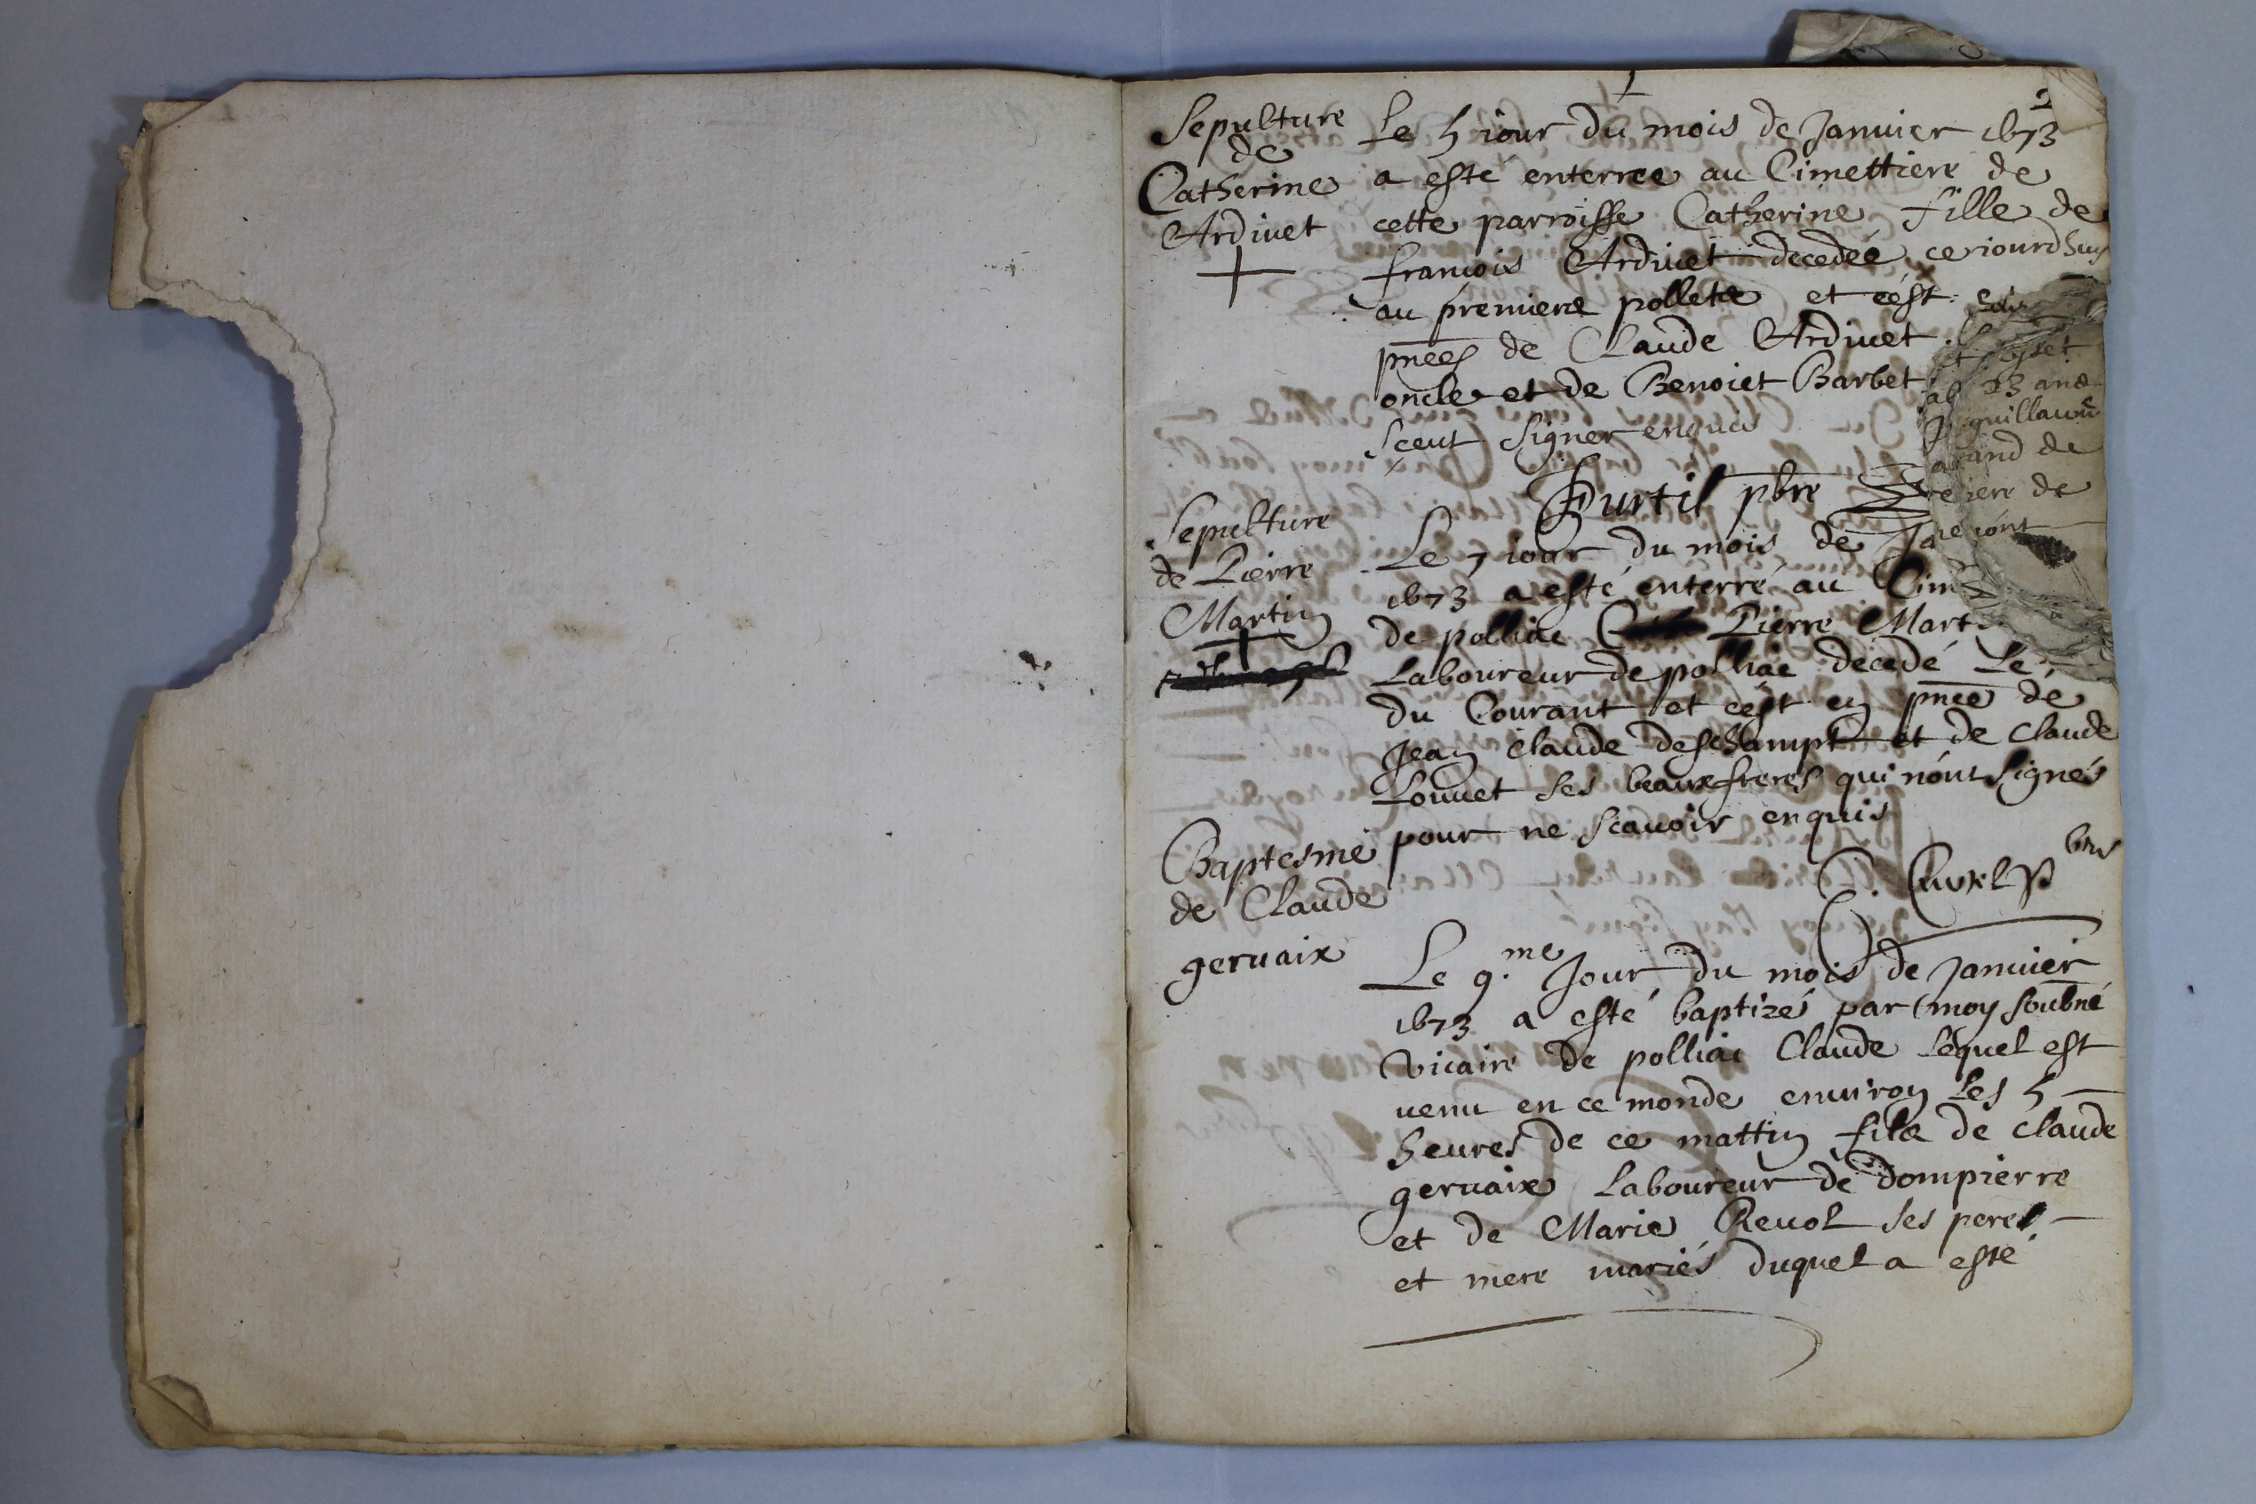 2
Sepulture
de
Catherine
Ardiuet
Le 5 iour du mois de Januier 1673
a esté enterree au Cimettiere de
cette parroisse Catherine fille de
francois Ardiuet decedée ce iourdhuy
au premiere pollete et cést
pnces de Claude Ardiuet
oncle et de Benoict Barbet
sceut signer enquis
Purtil pbre
guillaume
and de
iere de
Sepulture
de Pierre
Martin
Le 7 iour du mois de Ja
1673 a esté enterré au Cim
de polliac Pierre Mart
Laboureur de polliac decedé Le
du Courant et cést en pnce de
Jean Claude deschampt et de Claude
Louuet ses beauxfreres qui nónt signés
pour ne scauoir enquis
Baptesme
de Claude
geruaix
Le 9.me Jour du mois de Januier
1673 a esté baptizé par moy soubné
vicaire de polliac Claude Lequel est
uenu en ce monde enuiron Les 5
heures de ce mattin filz de Claude
geruaix Laboureur de dompierre
et de Marie Reuol ses peres
et mere mariés duquel a esté